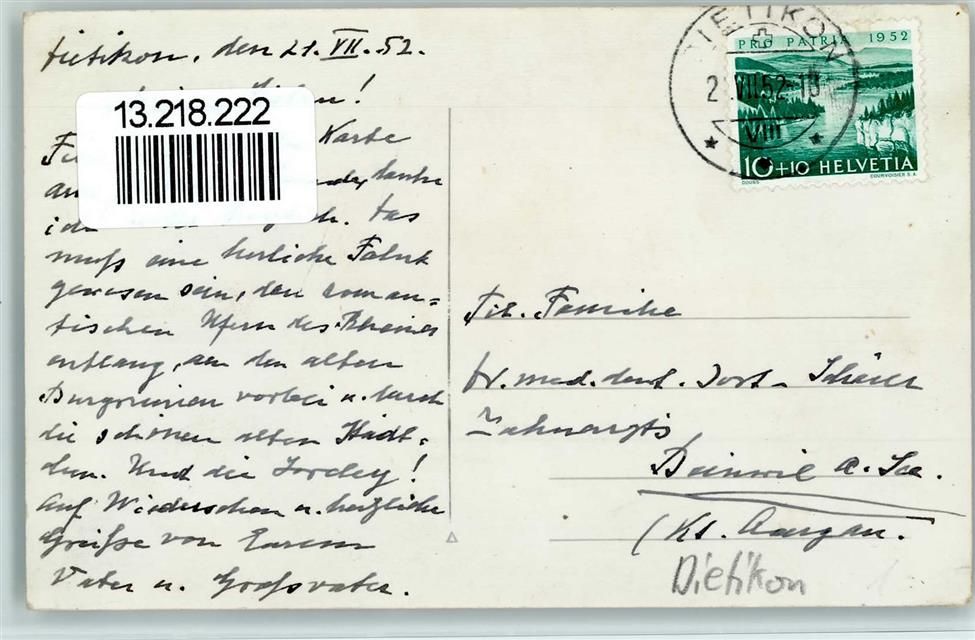 Dietikon, den 21. VII. 52.
!
13.218.222
Karte
danke
ich. Das
muß eine herrliche Fahrt
gewesen sein, den roman-
tischen Ufern des Rheines
entlang, an den alten
Burgruinen vorbei u. durch
die schönen alten Städt-
chen. Und die Loreley!
Auf Wiedersehen u. herzliche
Grüße von Eurem
Vater u. Großvater.
DIETIKON
VII.52
VIII
PRO PATRIA 1952
10+10 HELVETIA
COURVOISIER S.A.
Tit. Familie
Dr. med. dent.
Zahnarzts
Beinwil a. See.
(Kt. Aargau.
Dietikon